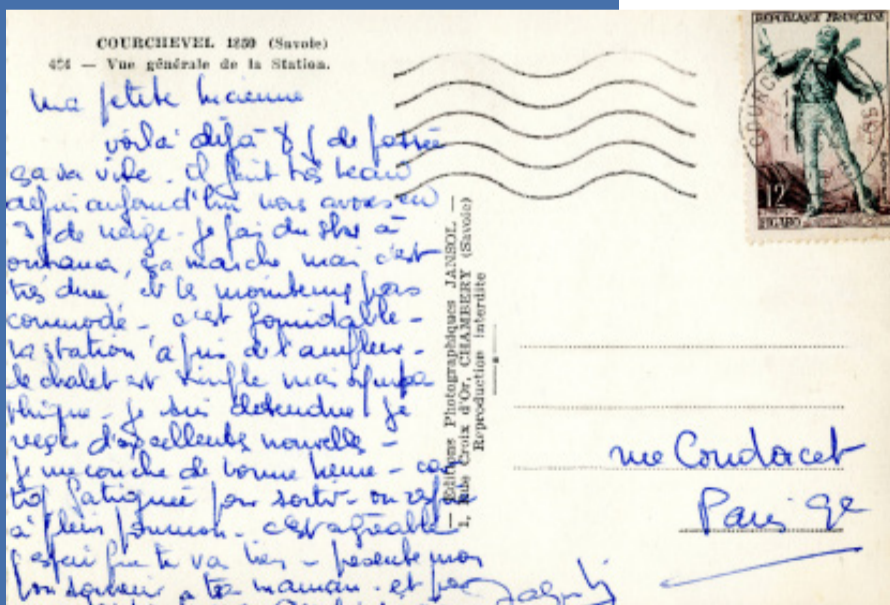 COURCHEVEL 1850 (Savoie)
424 — Vue générale de la Station.
ma petite
voilà déjà 8 j de passés
ça va vite - il fait très beau
depuis aujourd'hui nous avons eu
3 j de neige - je fais du ski à
outrance, ça marche mais c'est
très dur et les moniteurs pas
commode - c'est formidable -
la station a pris de l'ampleur -
le chalet est simple mais sympa
thique - je suis détendue je
reçois d'excellentes nouvelles -
je me couche de bonne heure - car
trop fatiguée pour sortir - on respire
à plein poumon - c'est agréable
j'espère que tu vas bien - présente mon
bon souvenir a ta maman - et
— Éditions Photographiques JANSOL —
1, Rue Croix d'Or, CHAMBERY (Savoie)
Reproduction interdite
REPUBLIQUE FRANÇAISE
12
FIGARO
rue Condorcet
Paris 9e